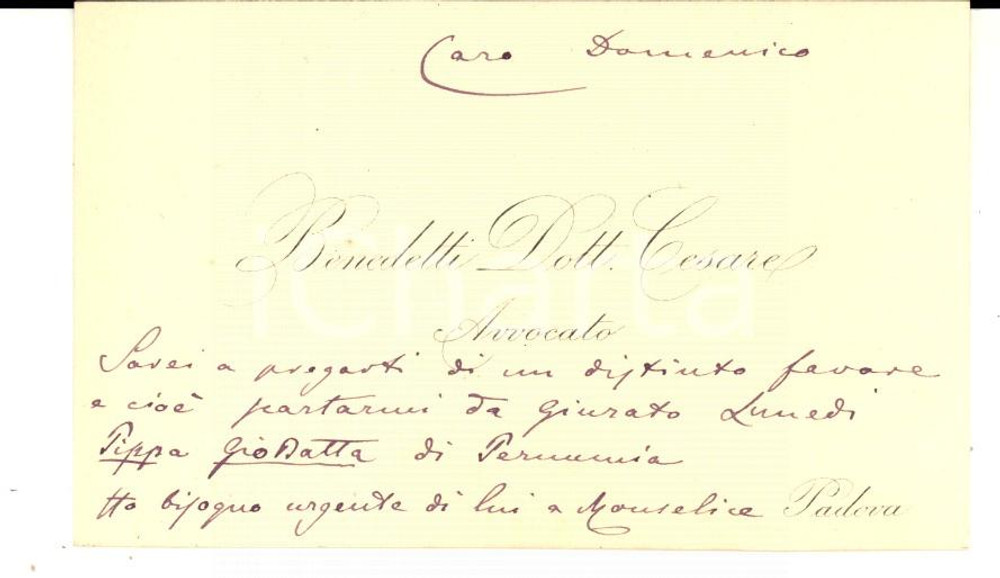 Caro Domenico
Benedetti Dott. Cesare
Avvocato
Sarei a pregarti di un distinto favore
e cioè partarmi da Giurato Lunedì
Pippa Gio Batta di Pernumia
Ho bisogno urgente di lui a Monselice Padova